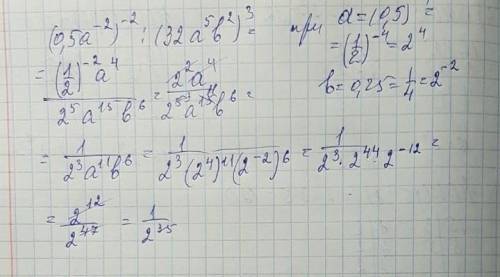 (0,5a⁻²)⁻² : (32a⁵b²)³ = при a = (0,5)
= (1/2)⁻²a⁴ / 2⁵a¹⁵b⁶ = 2²a⁴ / 2⁵a¹⁵b⁶ = = (1/2)⁻⁴ = 2⁴
b = 0,25 = 1/4 = 2⁻²
= 1 / 2³a¹¹b⁶ = 1 / 2³(2⁴)¹¹(2⁻²)⁶ = 1 / 2³ · 2⁴⁴ · 2⁻¹² =
= 2¹² / 2⁴⁷ = 1 / 2³⁵